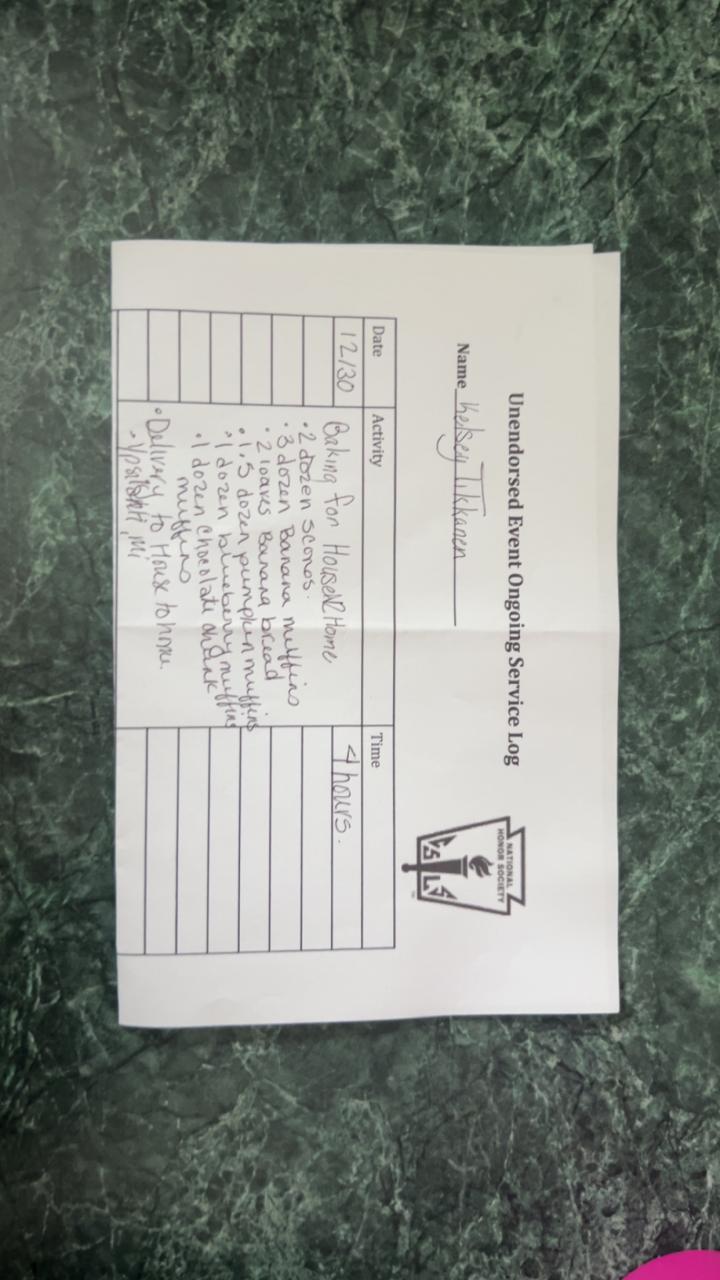 Unendorsed Event Ongoing Service Log
NATIONAL
HONOR SOCIETY
C S L S
Name Kelsey Tikkanen
Date Activity Time
12/30 Baking for House2Home 4 hours.
• 2 dozen scones.
• 3 dozen Banana muffins
• 2 loaves Banana bread
• 1.5 dozen pumpkin muffins
• 1 dozen blueberry muffins
• 1 dozen chocolate chunk
muffins
• Delivery to House to home.
• Ypsilanti, mi